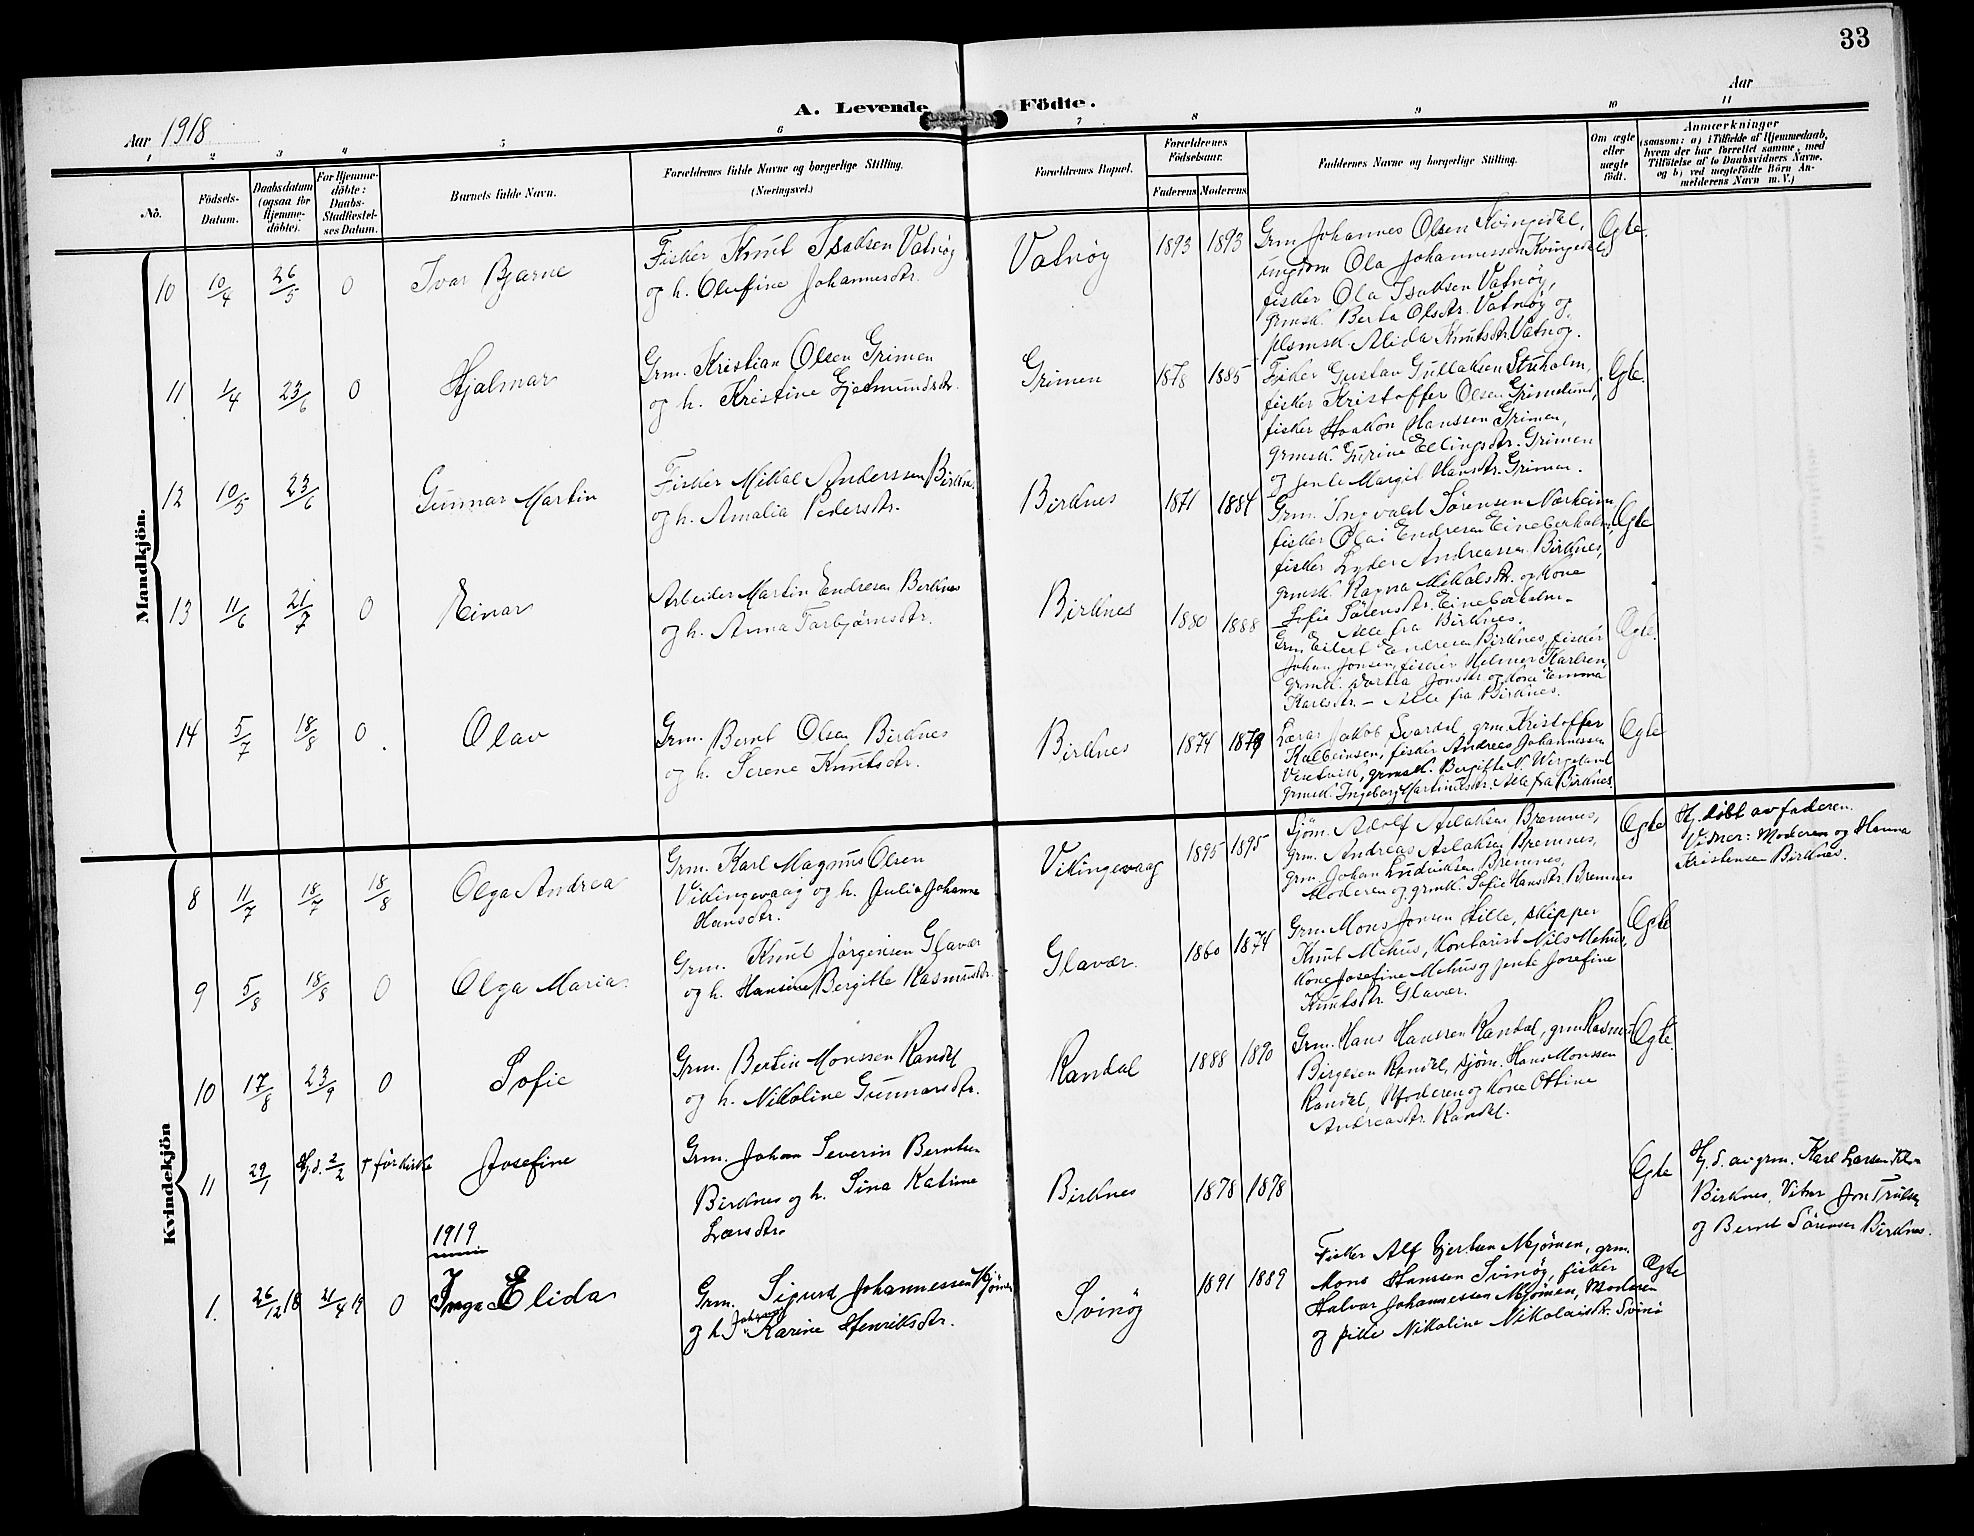 33
A. Levende Födte.
Aar 1918
Aar
1 2 3 4 5 6 7 8 9 10 11
No.
Födsels-Datum.
Daabsdatum (ogsaa for Hjemme-döbte).
For Hjemme-döbte: Daabs-Stadfæstel-ses Datum.
Barnets fulde Navn.
Forældrenes fulde Navne og borgerlige Stilling.
(Næringsvei.)
Forældrenes Bopæl.
Forældrenes Födselsaar.
Faderens Moderens
Faddernes Navne og borgerlige Stilling.
Om ægte eller uægte födt.
Anmærkninger
(saasom: a) i Tilfælde af Hjemmedaab,
hvem der har forrettet samme, med
Tilföielse af to Daabsvidners Navne,
og b) ved uegtefödte Börn An-
melderens Navn m. V.)
Mandkjön.
10 10/4 26/5 0 Ivar Bjarne
Fisker Knut Isaksen Vatnøy
og h. Olufine Johannesdtr.
Vatnøy 1893 1893
Grm Johannes Olsen Kvingedal,
ungdom Ola Johannessen Kvingedal,
fisker Ola Isaksen Vatnøy,
grmsk. Berta Olsdtr. Vatnøy og
Alida Knutsdtr Vatnøy.
Egte.
11 1/4 23/6 0 Hjalmar
Grm. Kristian Olsen Grimen
og h. Kristine Gjelmundsdtr.
Grimen 1878 1885
Fisker Gustav Gullaksen Stuholm,
fisker Kristoffer Olsen Grimelund,
fisker Haakon Hanssen Grimen,
grmsk. Gurine Ellingsdtr. Grimen
og jente Margit Hansdtr. Grimen.
Egte.
12 10/5 23/6 Gunnar Martin
Fisker Mikal Anderssen Birkn.
og h. Amalia Pedersdtr.
Birknes 1871 1884
Grm. Ingvald Sørensen Nærheim
fisker Olai Endresen Eineberholm,
fisker Lyder Andreassen Birknes,
grmsk. Ragna Mikalsdtr. og kone
Sofie Sørensdtr. Eineberholm -
Alle fra Birknes.
Egte
13 11/6 21/7 0 Einar
Arbeider Martin Endresen Birknes
og h. Anna Torbjørnsdtr.
Birknes 1880 1888
Grm. Eilert Endresen Birknes, fisker
Johan Jonsen, fisker Helmer Karlsen,
grmsk. Dortea Jonsdtr og kone Emma
Karlsdtr - Alle fra Birknes.
Egte.
14 5/7 18/8 0 Olav
Grm. Bernt Olsen Birknes
og h. Serene Knutsdtr.
Birknes 1874 1879
Lærer Jakob Svardal, grm Kristoffer
Kolbeinsen, fisker Andreas Johannessen
grmsk. Bergitte N. Wergeland
grmsk. Ingeborg Martinusdtr. Alle fra Birknes.
Egte
Kvindekjön
8 11/7 18/7 18/8 Olga Andrea
Grm. Karl Magnus Olsen
Vikingevaag og h. Julia Johanne
Hansdtr.
Vikingevaag 1895 1895
Sjøm. Adolf Aslaksen Bremnes,
grm. Andreas Aslaksen Bremnes,
grm. Johan Ludviksen Bremnes,
Moderen og grmsk. Sofie Hansdtr. Bremnes
Egte
Hj. døbt av faderen.
Vitner: Moderen og Hanna
Kristensen Birknes.
9 5/8 18/8 0 Olga Maria.
Grm. Knut Jørgensen Glavær
og h. Hansine Bergitte Rasmusdtr.
Glavær. 1860 1874
Grm. Mons Jonsen Hille, skipper
Knut Mehus, kontorist Nils Mehus,
kone Josefine Mehus og jente Josefine
Knutsdtr. Glavær.
Egte
10 17/8 23/9 0 Sofie
Grm. Bertin Monssen Randal
og h. Nikoline Gunnarsdtr.
Randal 1888 1890
Grm. Hans Hansen Randal, grm Rasmus
Birgesen Randal, sjøm. Hans Monssen
Randal, Moderen og kone Oline
Andreasdtr. Randal.
Egte.
11 29/1 Hj.d. 2/2 † før kirke Josefine
Grm. Johan Severin Berntsen
Birknes og h. Sina Katinne
Larsdtr.
Birknes 1878 1878
Egte
Hj. d. av grm. Karl Larsen
Birknes. Vitner Jon
og Bernt Sørensen Birknes.
1919
1. 26/12 18 21/4 19 0 Inga Elida
Grm. Sigurd Johannessen Mjømen
og h. Johanna Karine Henriksdtr.
Svinøy 1891 1889
Fisker Alf Gjertsen Mjømen, grm.
Mons Hanssen Svinøy, fisker
Halvor Johannessen Mjømen, Moderen
og pike Nikoline Nikolaisdtr. Svinø
Egte